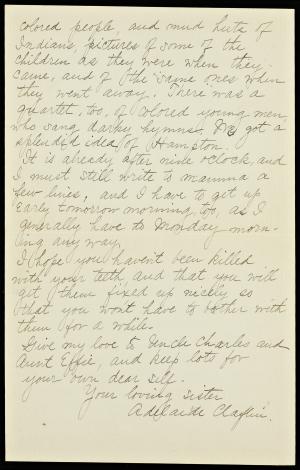 colored people, and mud huts of
Indians, pictures of some of the
children as they were when they
came, and of the same ones when
they went away. There was a
quartet, too, of colored young men,
who sang darky hymns. We got a
splendid idea of Hampton.
It is already after nine o'clock, and
I must still write to mamma a
few lines, and I have to get up
early tomorrow morning, too, as I
generally have to Monday morn-
ing any way.
I hope you haven't been killed
with your teeth and that you will
get them fixed up nicely so
that you wont have to bother with
them for a while.
Give my love to Uncle Charles and
Aunt Effie, and keep lots for
your own dear self.
Your loving sister
Adelaide Claflin.